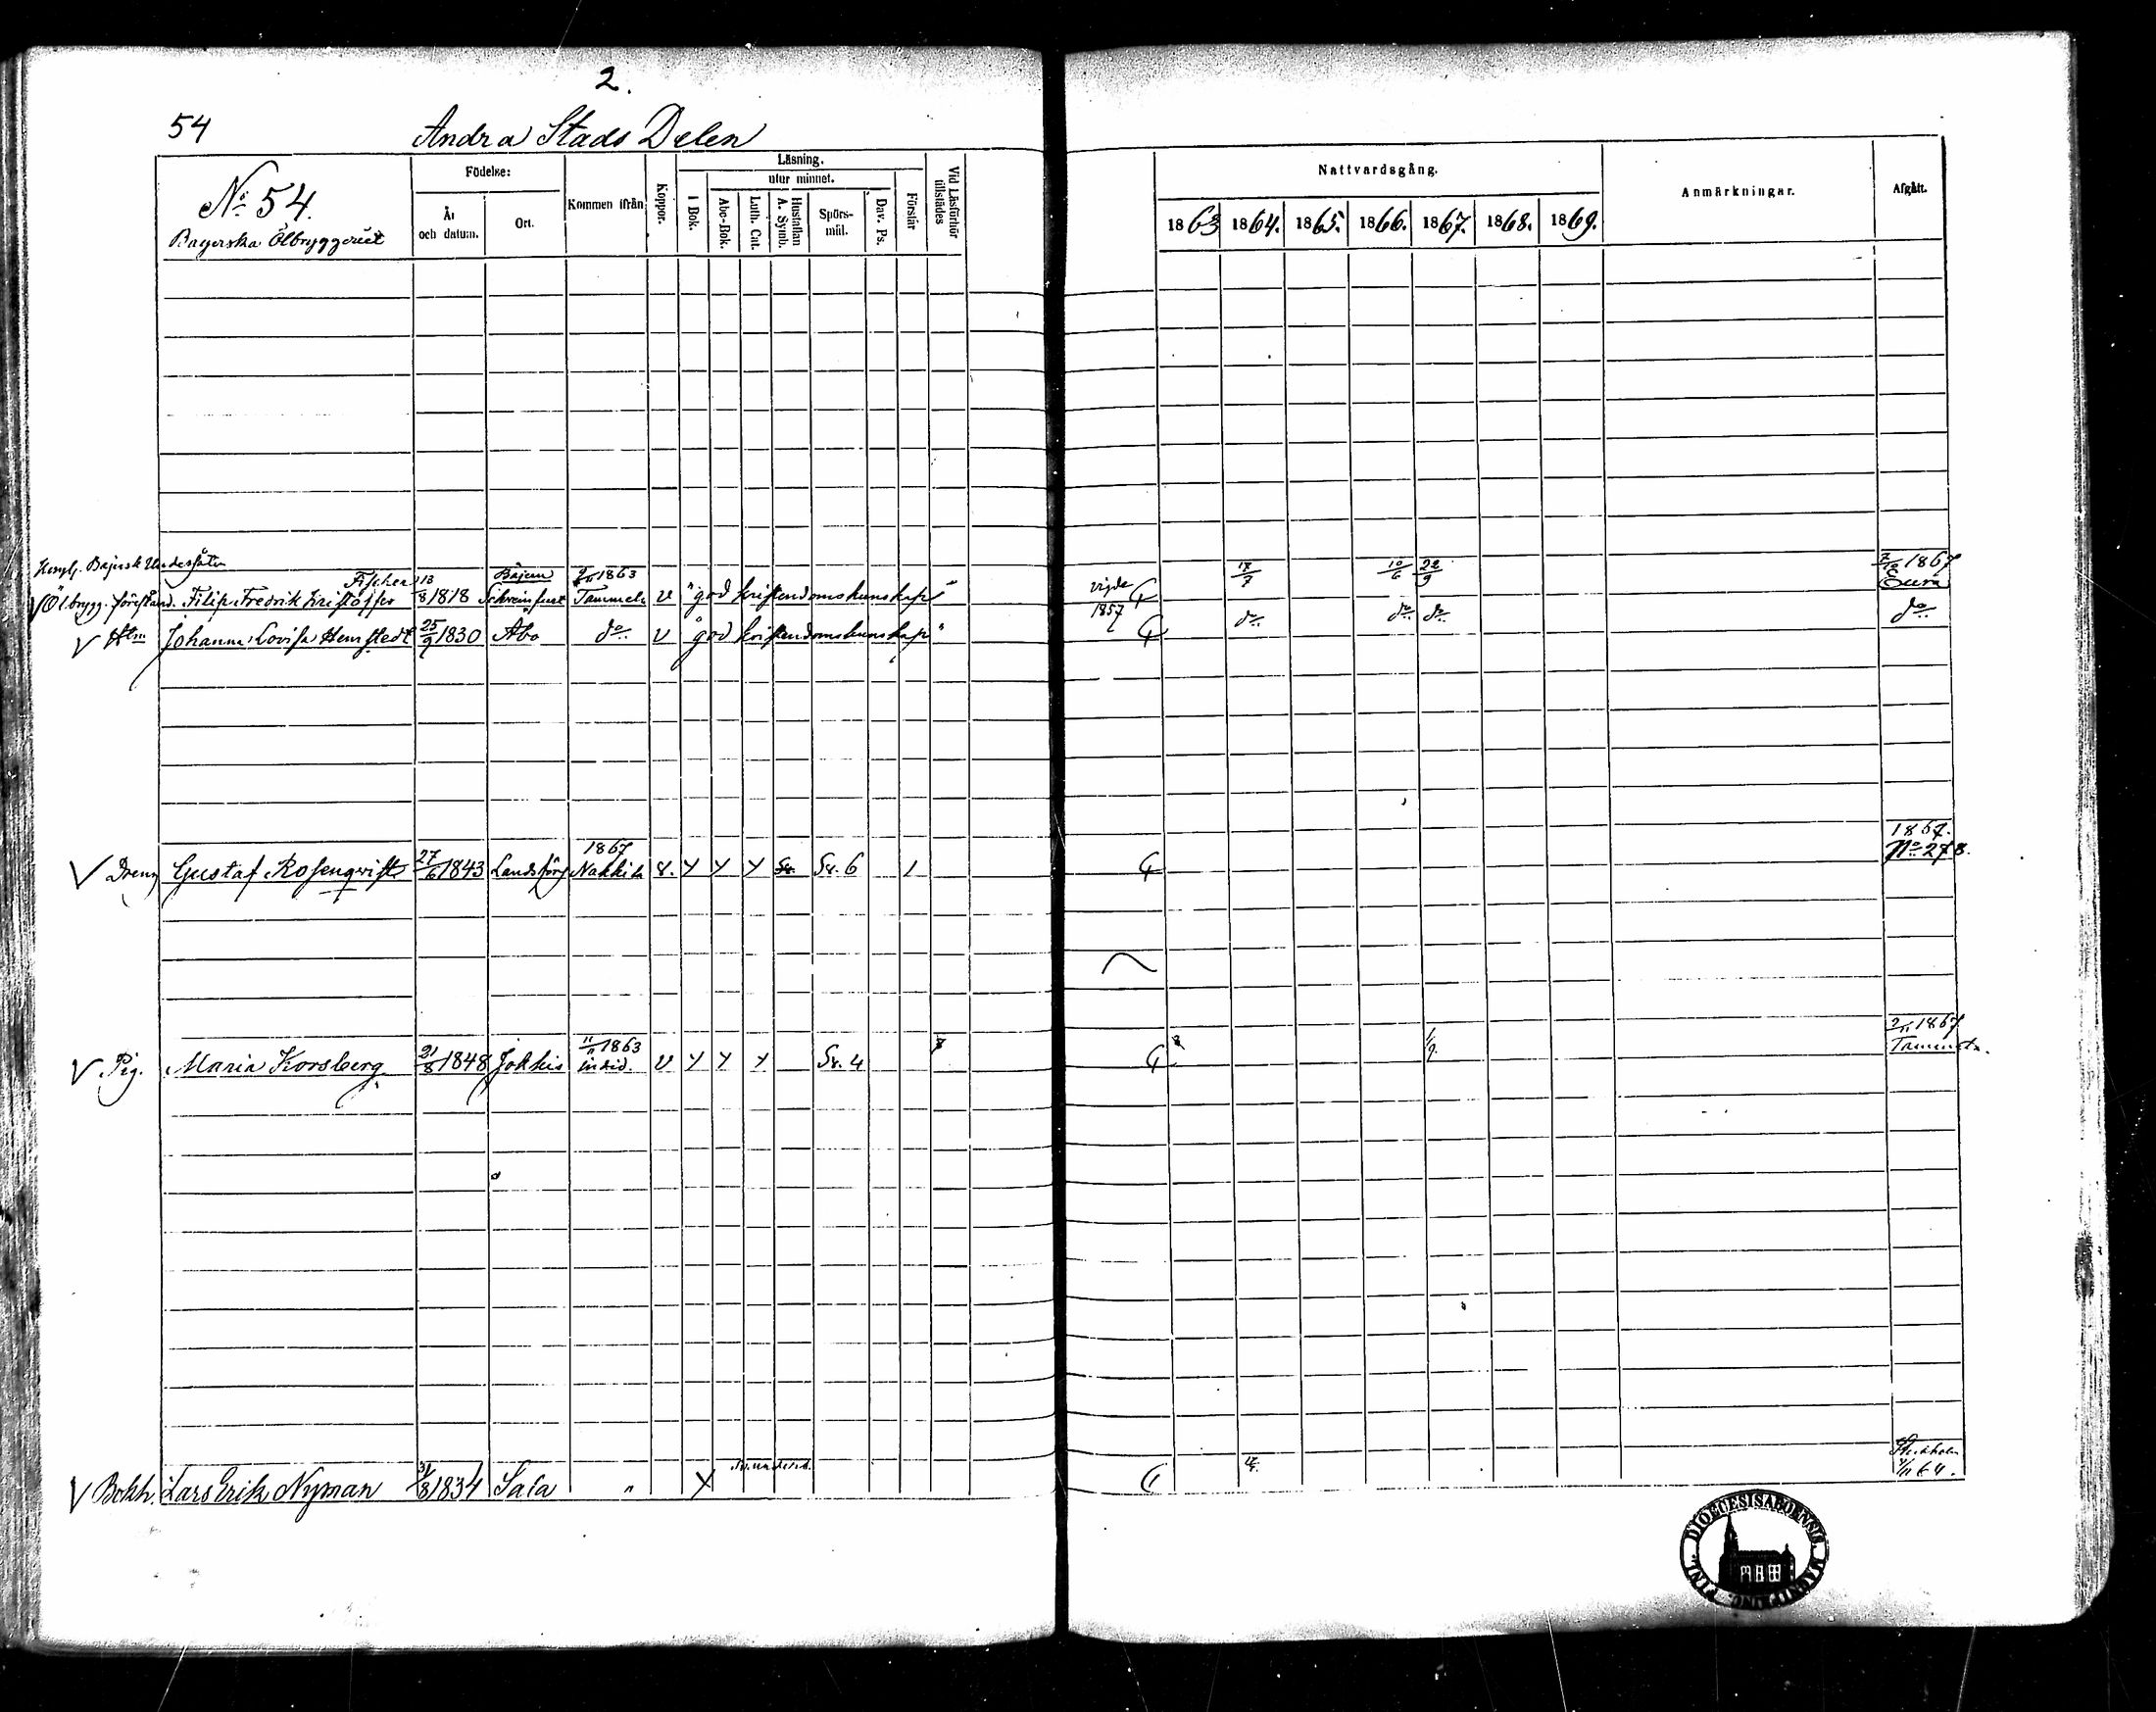 2.
54 Andra Stads Delen
No 54.
Bayerska Ölbryggeriet
Födelse:
År och datum.
Ort.
Kommen ifrån
Koppor.
Läsning.
I Bok.
utur minnet.
Abc-Bok.
Luth. Cat.
Hustaflan A. Symb.
Spörs-mål.
Dav. Ps.
Förstår
Vid Läsförhör tillstädes
Nattvardsgång.
1863 1864. 1865. 1866. 1867. 1868. 1869.
Anmärkningar.
Afgått.
Bajersk Undersåte
Fischer 13 Bajern 1863 17/7 10/6 22/9 1867
Ölbrygg. förestånd. Filip Fredrik Kristoffer /8 1818 Schweinfurt Tammela v "god kristendomskunskap" vigde Eura
V Hm Johanna Lovisa Hemstedt 25/9 1830 Åbo do v "god kristendomskunskap" 1857 do do do do
1867 1867.
V Dreng Gustaf Rosenqvist 27/6 1843 Landskförs Nakkila v. Y Y Y Sv. Sv. 6 1 No 278.
11/11 1863 1/9 2/11 1867
V Pig. Maria Korsberg 21/8 1848 Jokkis inkid. v Y Y Y Sv. 4 Tammela.
Stockholm
V Bokh. Lars Erik Nyman 31/8 1834 Sala " Y 64.
DIOECESIS ABOENSIS MAGNI PRINC. FINL.